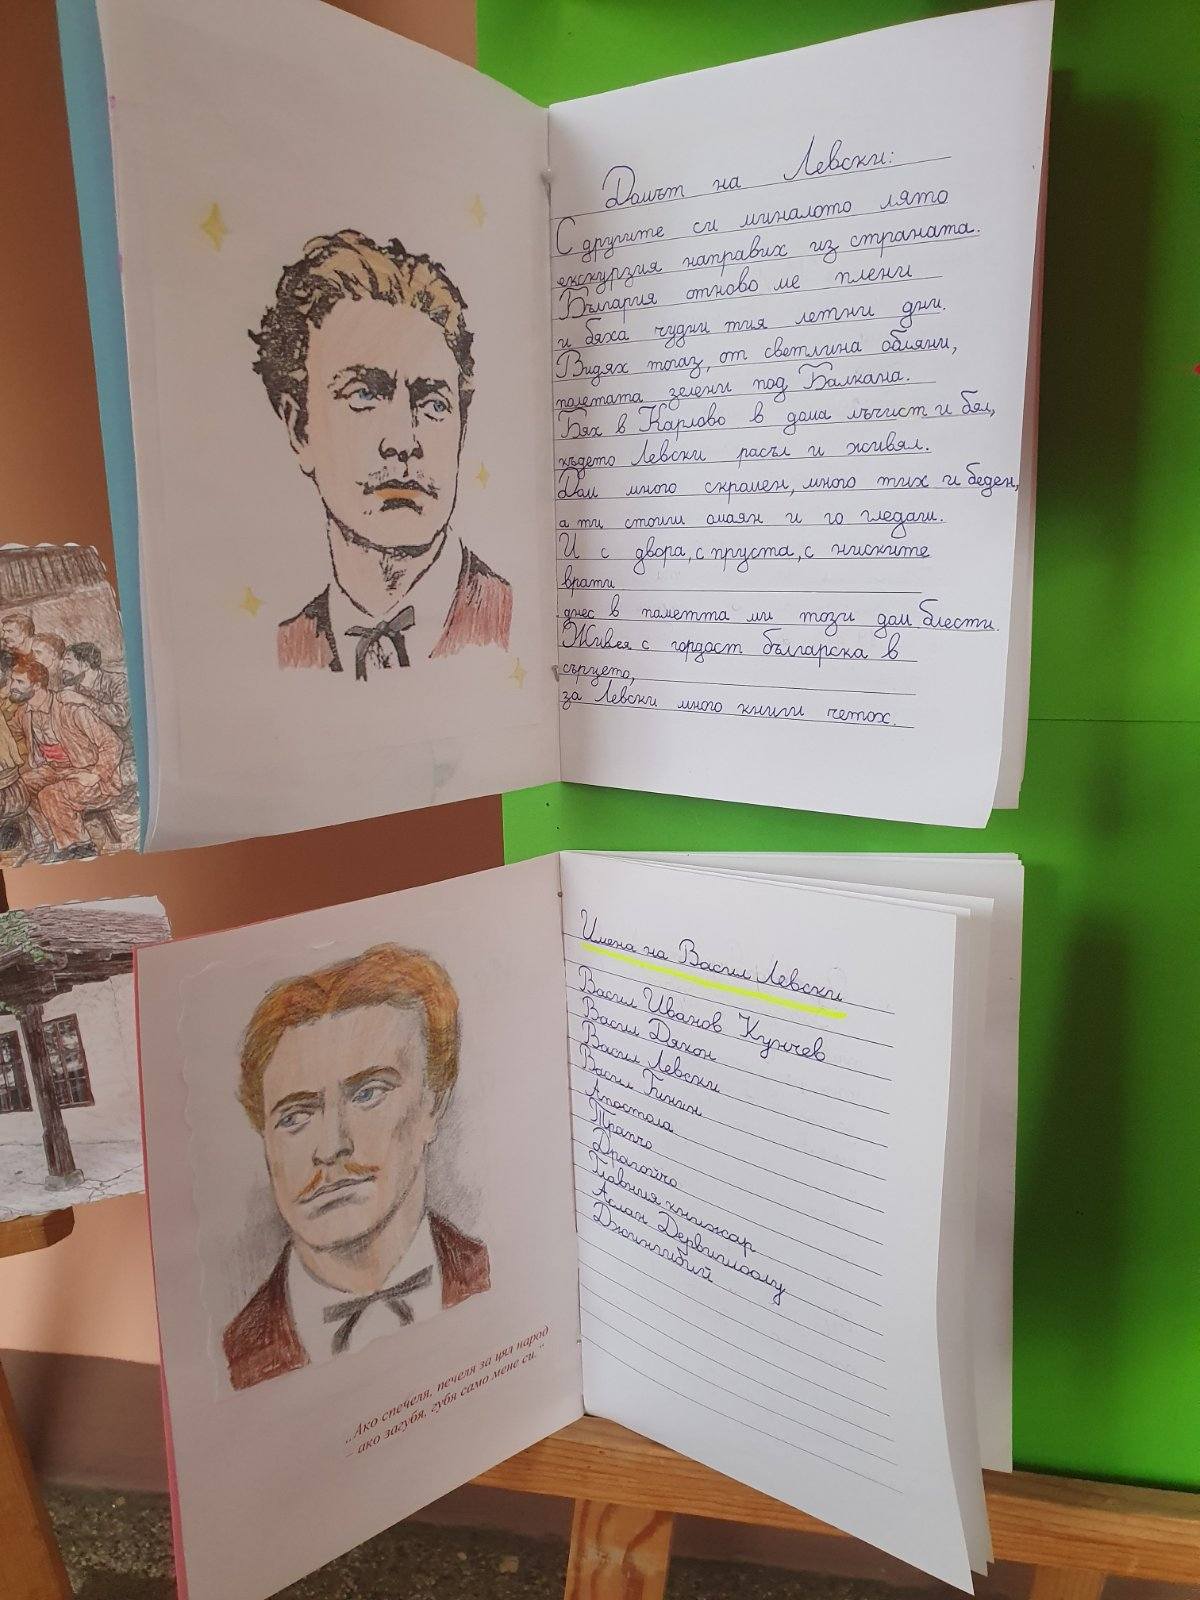 Домът на Левски:
С другите си миналото лято
екскурзия направих из страната.
България отново ме плени
и бяха чудни тия летни дни.
Видях тогаз, от светлина обляни,
полетата зелени под Балкана.
Бях в Карлово в дома лъчист и бял,
където Левски расъл и живял.
Дом много скромен, много тих и беден,
а ти стоиш омаян и го гледаш.
И с двора, с пруста, с ниските
врати
днес в паметта ми този дом блести.
Живея с гордост българска в
сърцето,
за Левски много книги четох.
Имена на Васил Левски
Васил Иванов Кунчев
Васил Дякон
Васил Левски
Васил Гинин
Апостола
Трапчо
Драгойчо
Главния книжар
Аслан Дервишоолу
Джингибий
„Ако спечеля, печеля за цял народ
– ако загубя, губя само мене си.“